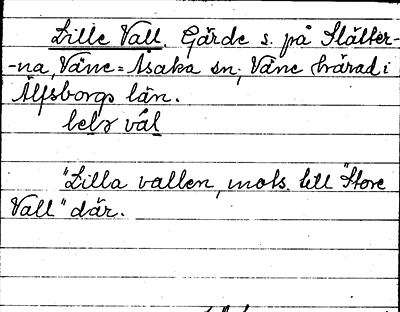 Lille Vall. Gärde s. på Slätter-
-na, Väne-Åsaka sn, Väne härad i
Älfsborgs län.
vål
"Lilla vallen, mots. till "Store
Vall" där.